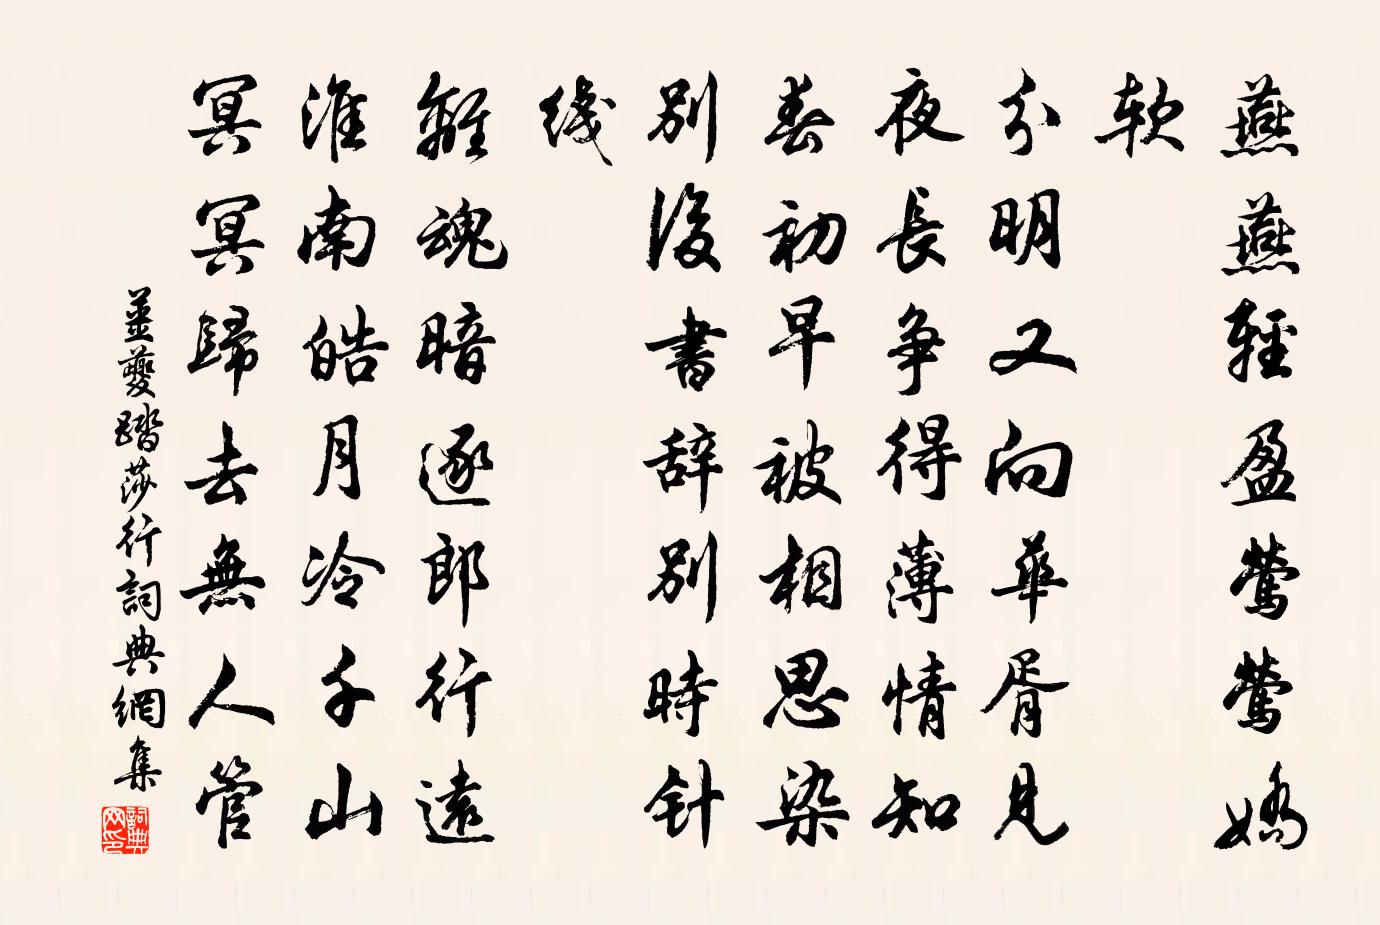 燕燕輕盈鶯鶯嬌
軟
分明又向華胥見
夜長争得薄情知
春初早被相思染
別後書辞別時针
线
離魂暗逐郎行遠
淮南皓月冷千山
冥冥歸去無人管
姜夔踏莎行詞典網集
詞典網印